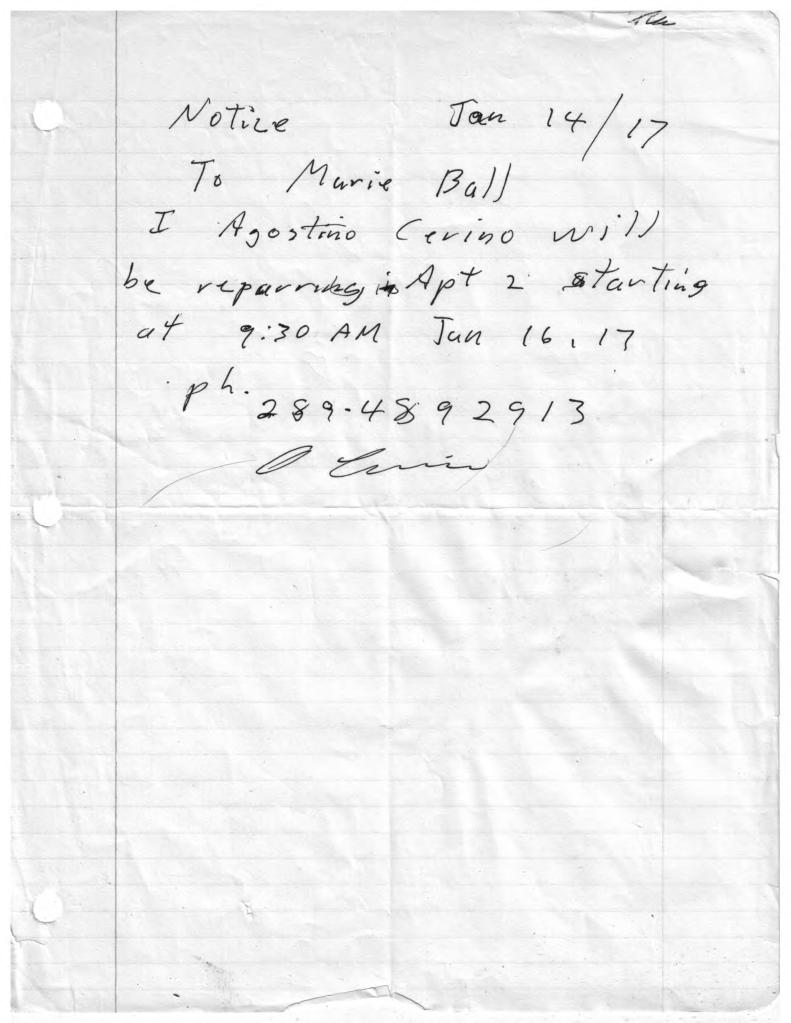 Notice Jan 14/17
To Marie Ball
I Agostino Cerino will
be reparring in Apt 2 starting
at 9:30 AM Jan 16, 17
ph.
289-4892913